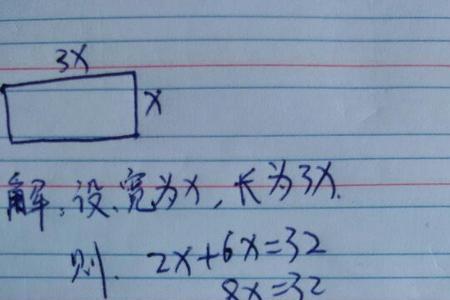 3x
x
解：设，宽为x，长为3x.
则. 2x+6x=32
8x=32